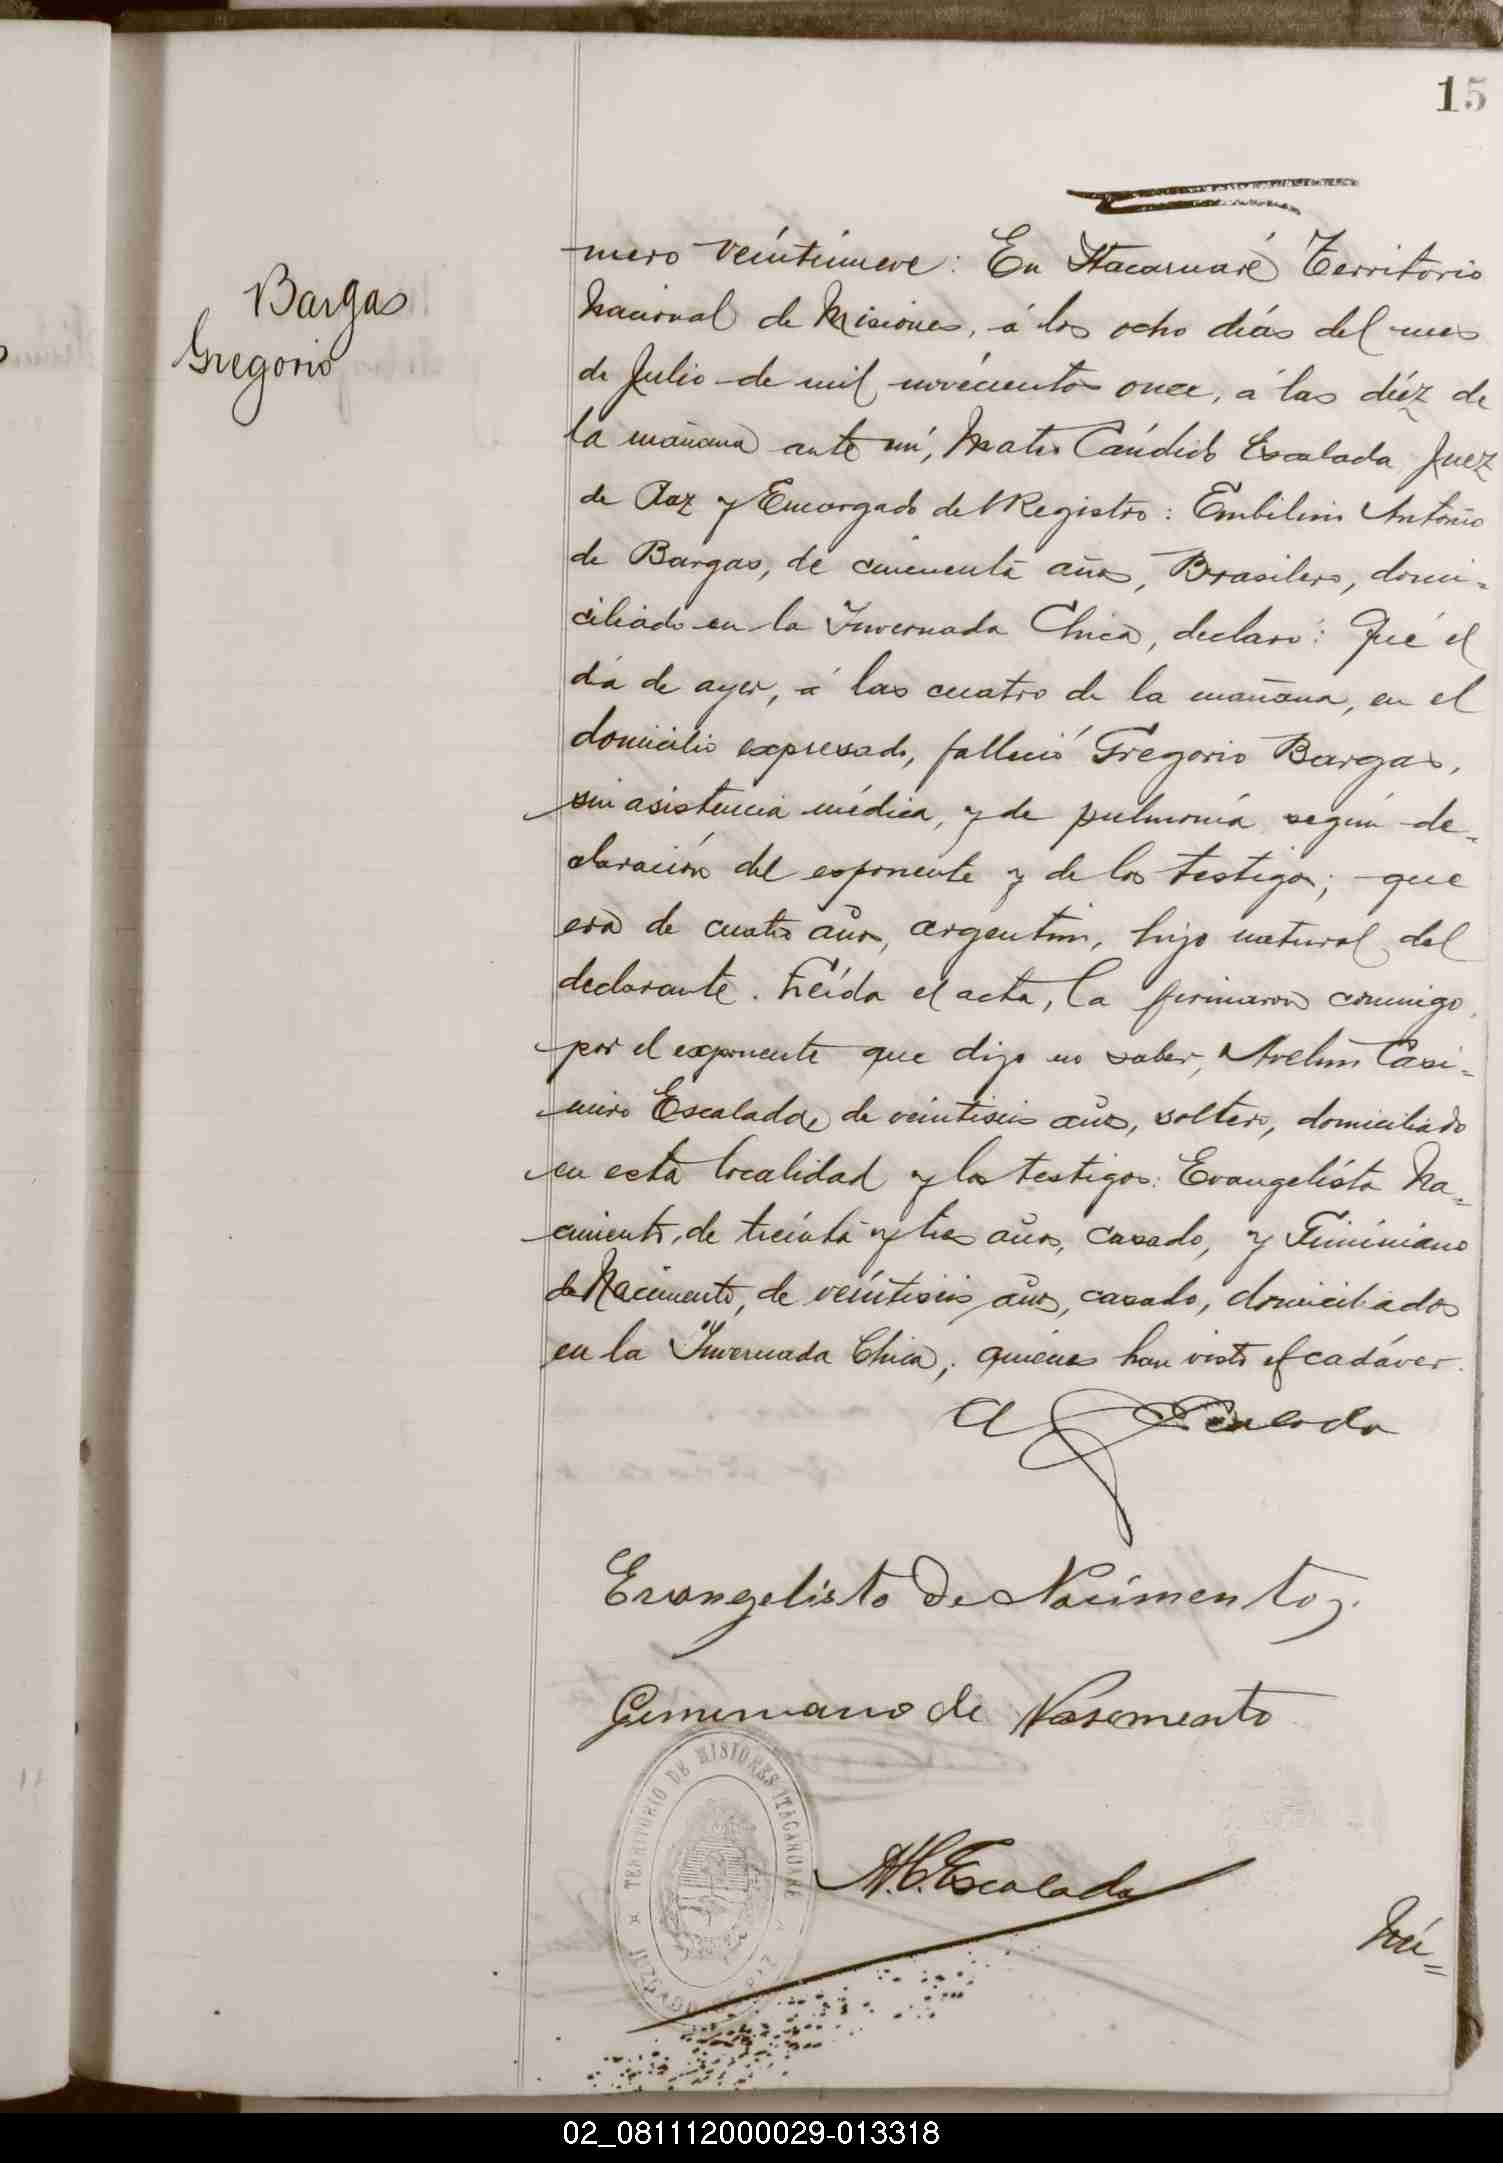 15
Bargas
Gregorio
mero veintinueve: En Itacaruaré Territorio
Nacional de Misiones, á los ocho días del mes
de Julio de mil novecientos once, á las diéz de
la mañana ante mí, Mateo Cándido Escalada Juez
de Paz y Encargado del Registro: Antonio
de Bargas, de cincuenta años, Brasilero, domi=
ciliado en la Invernada Chica, declaró: Qué el
día de ayer, á las cuatro de la mañana, en el
domicilio expresado, falleció Gregorio Bargas,
sin asistencia médica, y de pulmonía según de=
claración del esponente y de los testigos; que
era de cuatro años, argentino, hijo natural del
declarante. Leída el acta, la firmaron conmigo,
por el exponente que dijo no saber, Avelino Casi=
miro Escalada, de veintiseis años, soltero, domiciliado
en esta localidad y los testigos: Evangelísta Na=
cimento, de treínta y tres años, casado, y Fiminiano
de Nacimento, de veíntiseis años, casado, domiciliados
en la Invernada Chica, quienes han visto el cadáver.
A Escalada
Evangelisto de Nacimento
Geminiano de Nasemento
TERRITORIO DE MISIONES ITACARUARE
JUZGADO DE PAZ
M.C. Escalada
Nú=
02_081112000029-013318